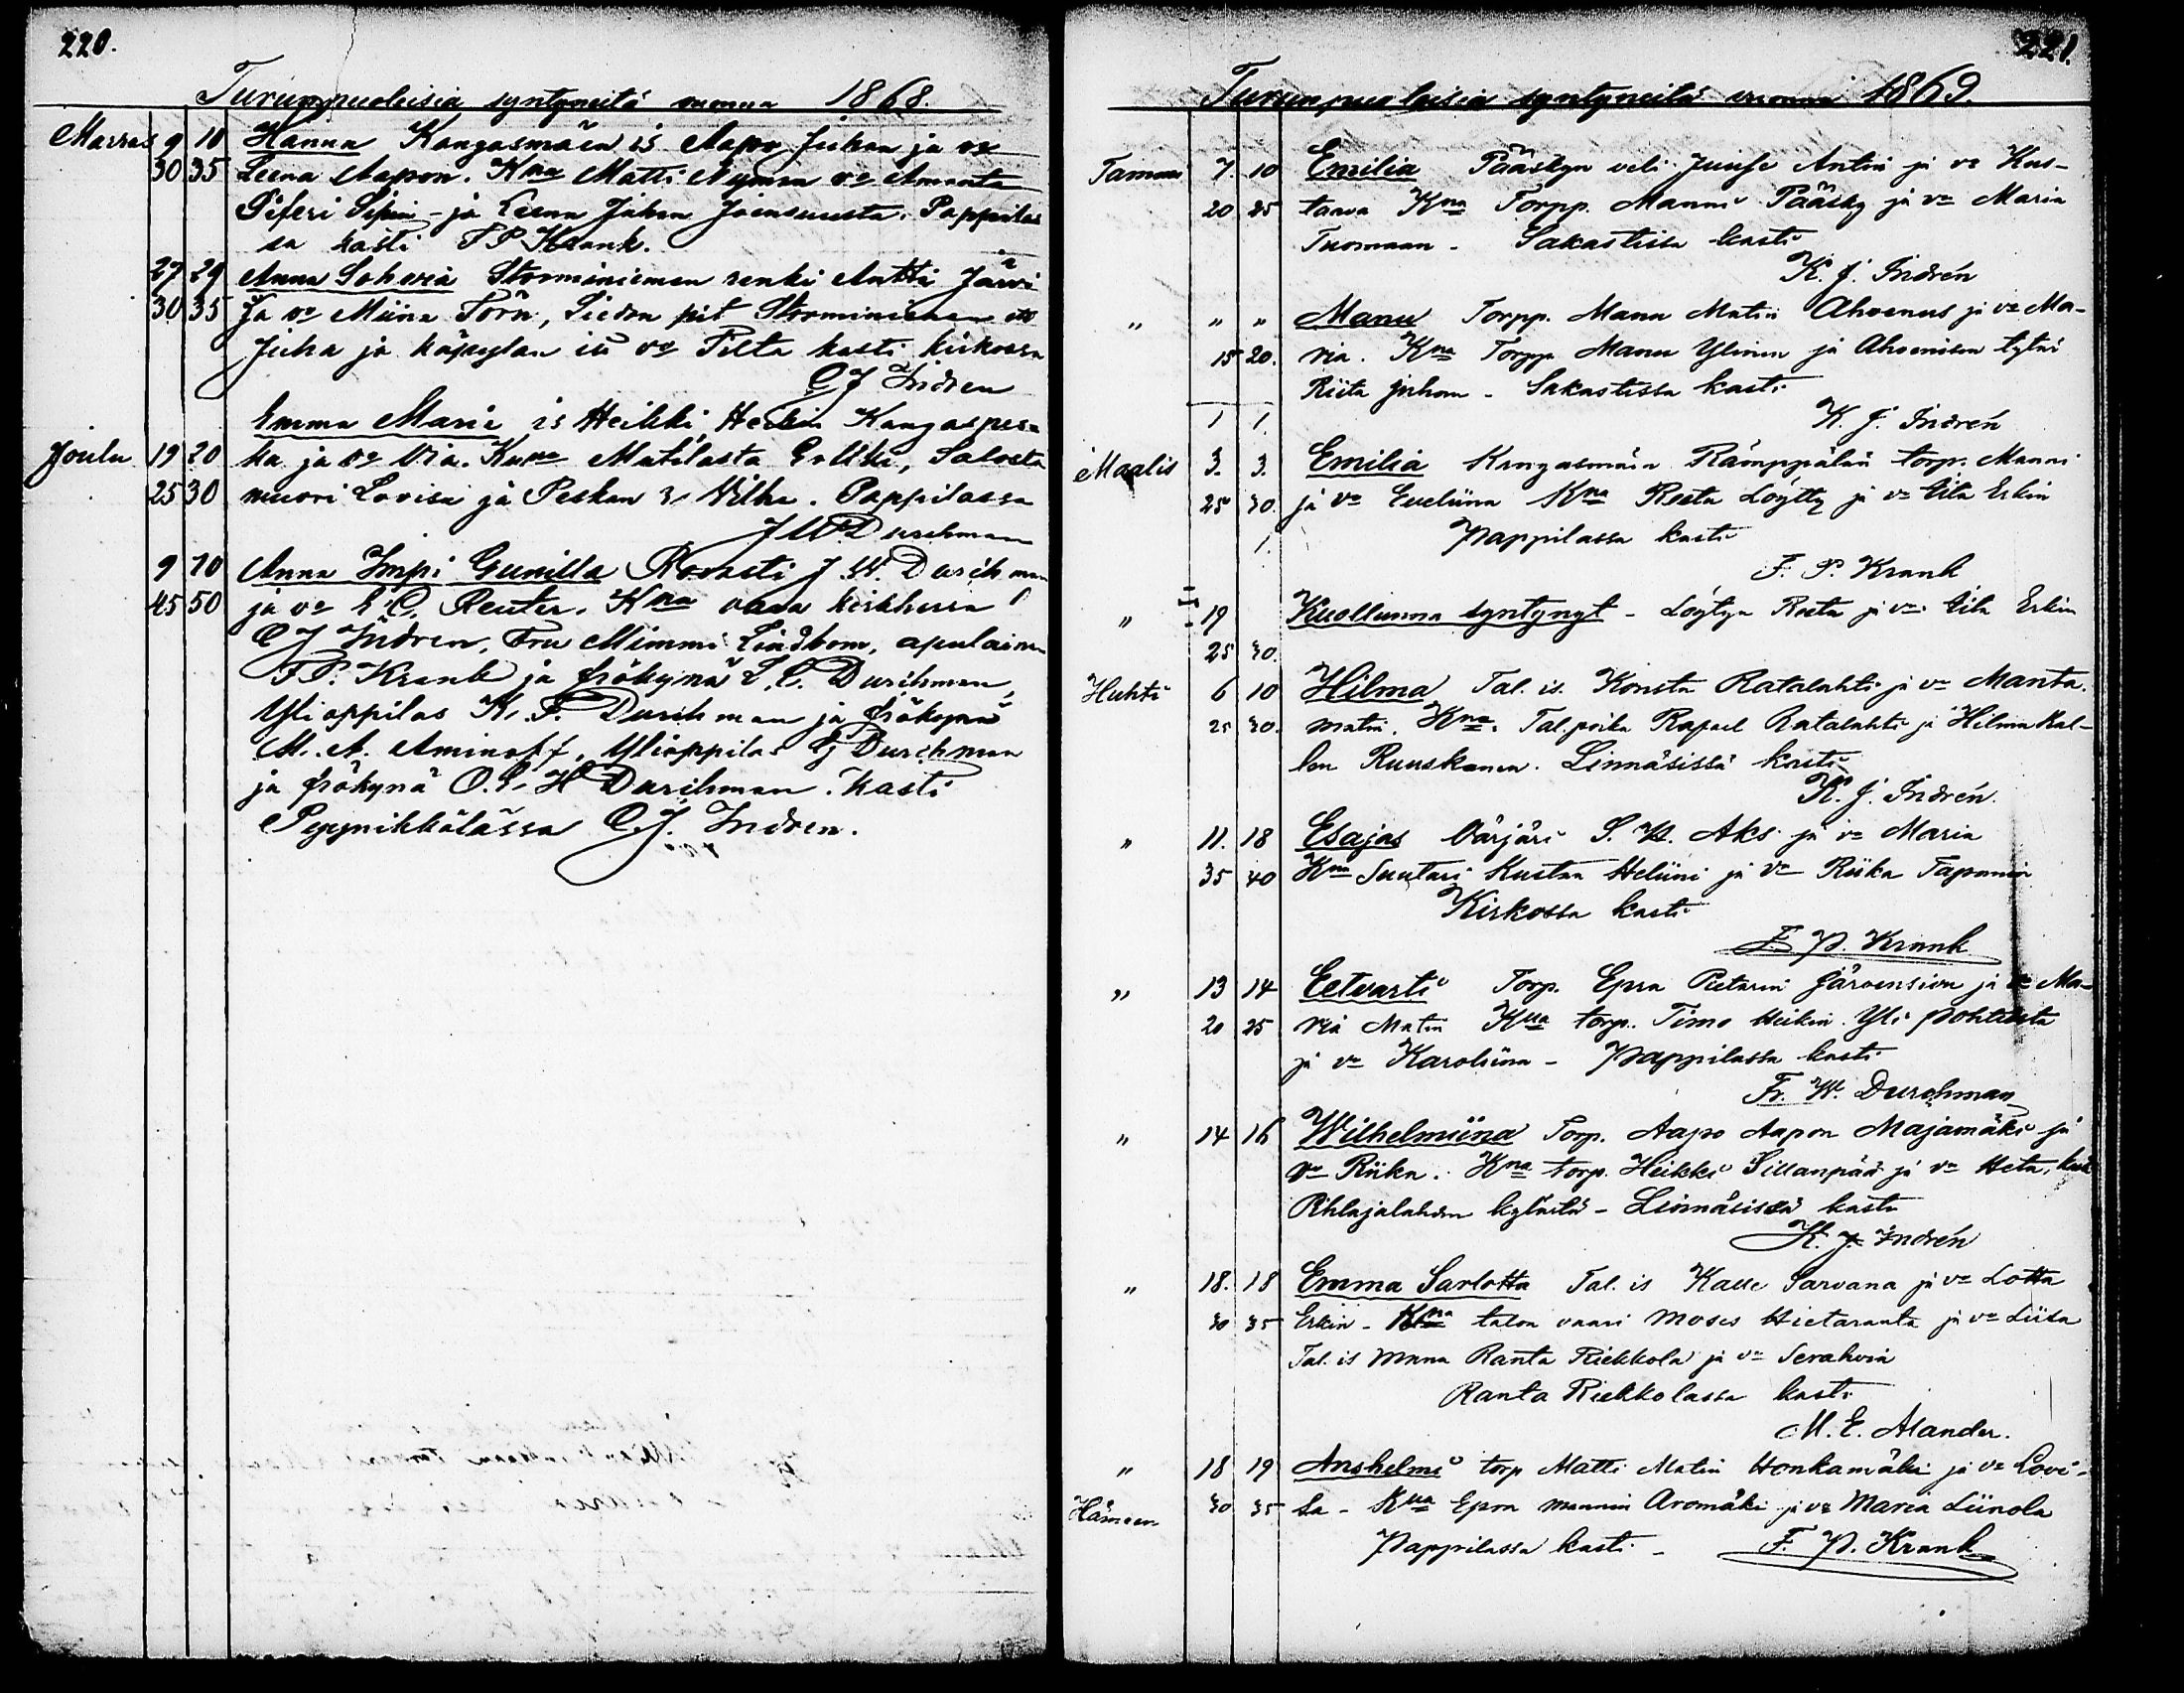 220.
Turunpuoleisia syntyneitä vuonna 1868.
Marras 9 10 Hanna Kangasmäen is Aapo Juhan ja vo
30 35 Leena Aapon. Kna Matti Nyman vo Amanta
Piferi Sipin - ja Leena Juhan Joensuusta. Pappilas
sa kasti F P Krank.
27 29 Anna Soheria Storminiemen renki Antti Järvi
30 35 ja vo Miina Törn, Liedon pit Storminiemen
Juha ja käpylan is vo Pilta kasti kirkossa
C J Indren
Emma Maria is Heikki Heikin Kangaspes-
Joulu 19 20 ka ja vo Via. Kna Matilasta Erkki, Salosta
25 30 muori Lovisa ja Peskan Vilha. Pappilassa
J W Durchman
9 10 Anna Impi Gunilla Rovasti J. W. Durchman
45 50 ja vo E. C. Reuter. Kna vara kirkherra
C J Indren, Fru Mimmi Lindbom, apulainen
F P. Krank ja frökynä L. C. Durchman,
Ylioppilas K. F. Durchman ja frökynä
M. A. Aminoff, Ylioppilas G Durchman
ja frökynä O. E. H Durchman. Kasti
Pyynikkälässä C. J. Indren.
221.
Turunpuoleisia syntyneitä vuonna 1869.
Tammi 7. 10 Emilia Pääskyn veli Juuse Antin ja vo Kus-
20 25 taava Kna Torpp. Manni Pääsky ja vo Maria
Tuomaan - Sakastissa kasti
K. J. Indrén
" " " Manu Torpp. Manu Matin Ahvenus ja vo Ma-
15 20. ria. Kna Torpp Manu Ylinen ja Ahvenisen tytär
Riita Juhan - Sakastissa kasti
1 1. K. J. Indrén
Maalis 3. 3. Emilia Kangasmäen Rämppälän torp. Manni
25 30. ja vo Eveliina Kna Reeta Löytty ja vo Eita Erkin
1. Pappilassa kasti
F. P. Krank
" 19 Kuollunna syntynyt - Löytyn Reeta ja vo Eita Erkin
25 30.
Huhti 6 10 Hilma Tal. is. Konsta Ratalahti ja vo Manta
25 30. matin. Kna. Tal. poika Rafael Ratalahti ja Hilma Kal-
len Ruuskanen. Linnäsissä kasti
K. J. Indrén.
" 11. 18 Esajas Värjäri S. K. Aks ja vo Maria
35 40 Kna Suutari Kustaa Heliini ja vo Riika Tapanin
Kirkossa kasti
F. P. Krank
" 13 14 Eetvarti Torp. Epra Pietarin Järvensivu ja vo Ma-
20 25 ria Matin Kna torp. Timo Heikin Yli Pohtiosta
ja vo Karoliina - Pappilassa kasti
Fr. W. Durchman
" 14 16 Wilhelmiina Torp. Aapo Aapon Majamäki ja
vo Riika. Kna torp. Heikki Sillanpää ja vo Heta,
Pihlajalahden kylästä - Linnäsissä kasti
K. J. Indrén
" 18. 18 Emma Sarlotta Tal. is Kalle Sarvana ja vo Lotta
30 35 Erkin - Kna talon vaari Moses Hietaranta ja vo Liisa
Tal. is Manu Ranta Riekkola ja vo Serahvia
Ranta Riekkolassa kasti
M. E. Alander.
" 18 19 Anshelmi torp Matti Matin Honkamäki ja vo Lovi-
Hämeen 30 35 sa - Kna Epra mannin Aromäki ja vo Maria Liinola
Pappilassa kasti - F. P. Krank